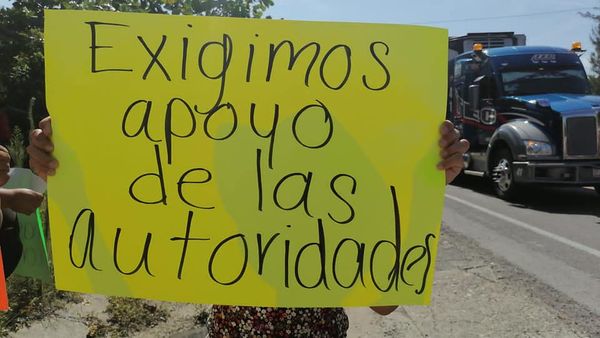 Exigimos
apoyo
de las
autoridades